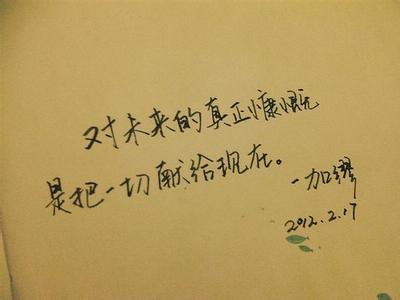 对未来的真正慷慨
是把一切献给现在。
—加缪
2012.2.17